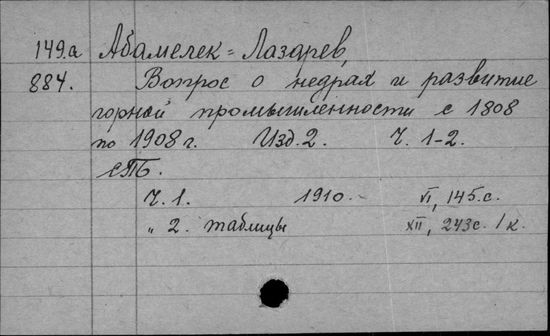 149.а Абамелек-Лазарев,
884. Вопрос о недрах и развитие
горной промышленности с 1808
по 1908 г. Изд. 2. Ч. 1-2.
СПБ.
Ч. 1. 1910. VI, 145 с.
" 2. таблицы XII, 243 с. 1 к.